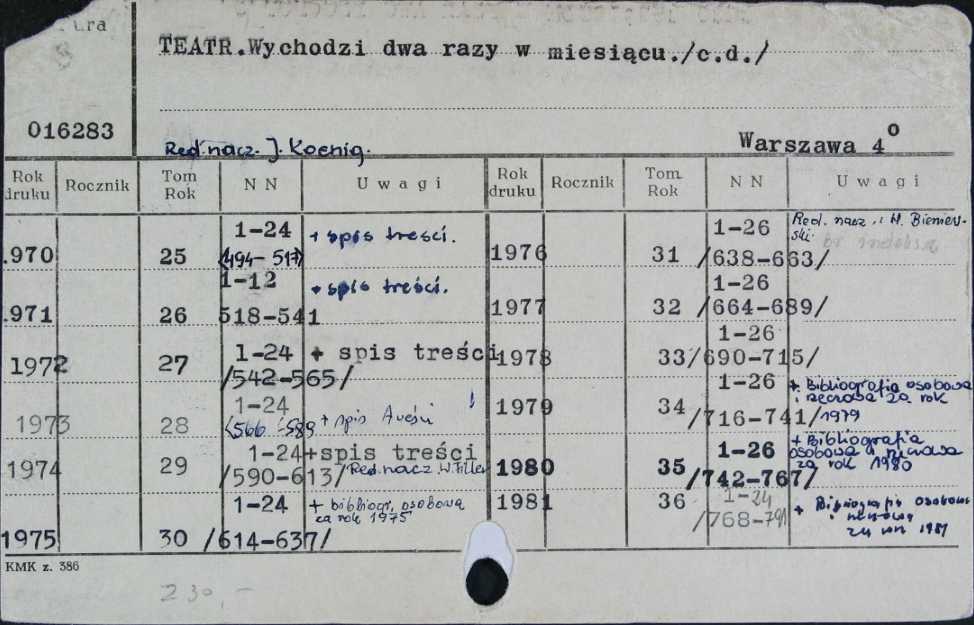 ura
TEATR.Wychodzi dwa razy w miesiącu./c.d./
016283
Red. nacz. J. Koenig.
Warszawa 4o
Rok druku Rocznik Tom Rok N N Uwagi Rok druku Rocznik Tom Rok N N Uwagi
.970 25 1-24 + spis treści.
(494-517)
.971 26 1-12 + spis treści.
518-541
1972 27 1-24 + spis treści
/542-565/
1973 28 1-24 + spis treści
(566-589
1974 29 1-24 +spis treści
/590-613/ Red. nacz. W. Filler
1975 30 1-24 + bibliogr. osobowa
za rok 1975
/614-637/
1976 31 1-26 Red. nacz.: W. Bieniewski.
/638-663/
1977 32 1-26
/664-689/
1978 33 1-26
/690-715/
1979 34 1-26 + Bibliografia osobowa
i rzeczowa za rok
/716-741/ 1979
1980 35 1-26 + Bibliografia
osobowa i rzeczowa
/742-767/ za rok 1980
1981 36 1-24 + Bibliografia osobowa
i rzeczowa
/768-791 za rok 1981
KMK z. 386
230,-